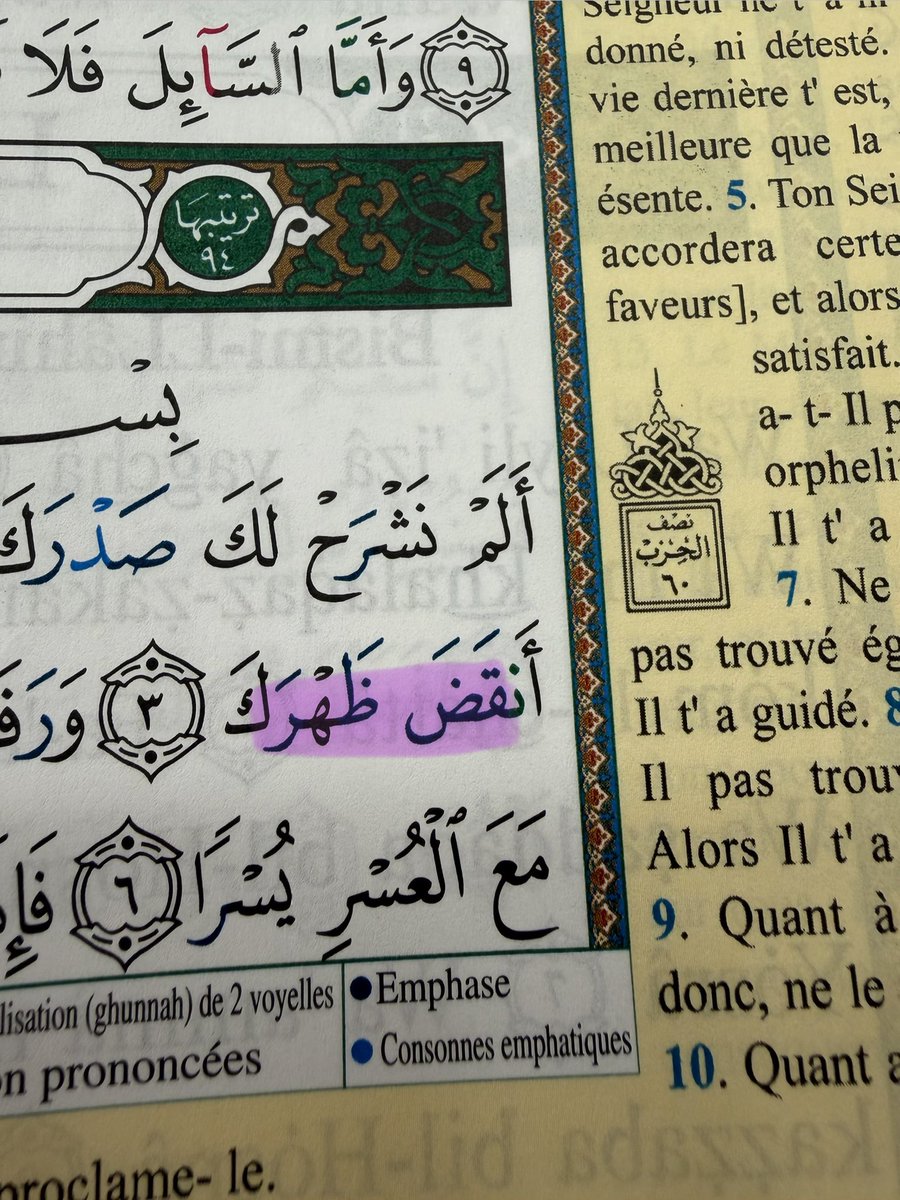 ٩ وَأَمَّا ٱلسَّآئِلَ فَلَا
تَرتيبها
٩٤
بِسْـ
أَلَمْ نَشْرَحْ لَكَ صَدْرَكَ
أَنقَضَ ظَهْرَكَ ٣ وَرَفَـ
مَعَ ٱلْعُسْرِ يُسْرًا ٦ فَإِ
lisation (ghunnah) de 2 voyelles
n prononcées
Emphase
Consonnes emphatiques
proclame- le.
Seigneur ne t' a
donné, ni détesté.
vie dernière t' est,
meilleure que la
ésente. 5. Ton Sei
accordera certe
faveurs], et alors
satisfait.
a- t- Il p
orpheli
نصف
الحزب
٦٠
Il t' a
7. Ne
pas trouvé ég
Il t' a guidé. 8
Il pas trouv
Alors Il t' a
9. Quant à
donc, ne le
10. Quant a